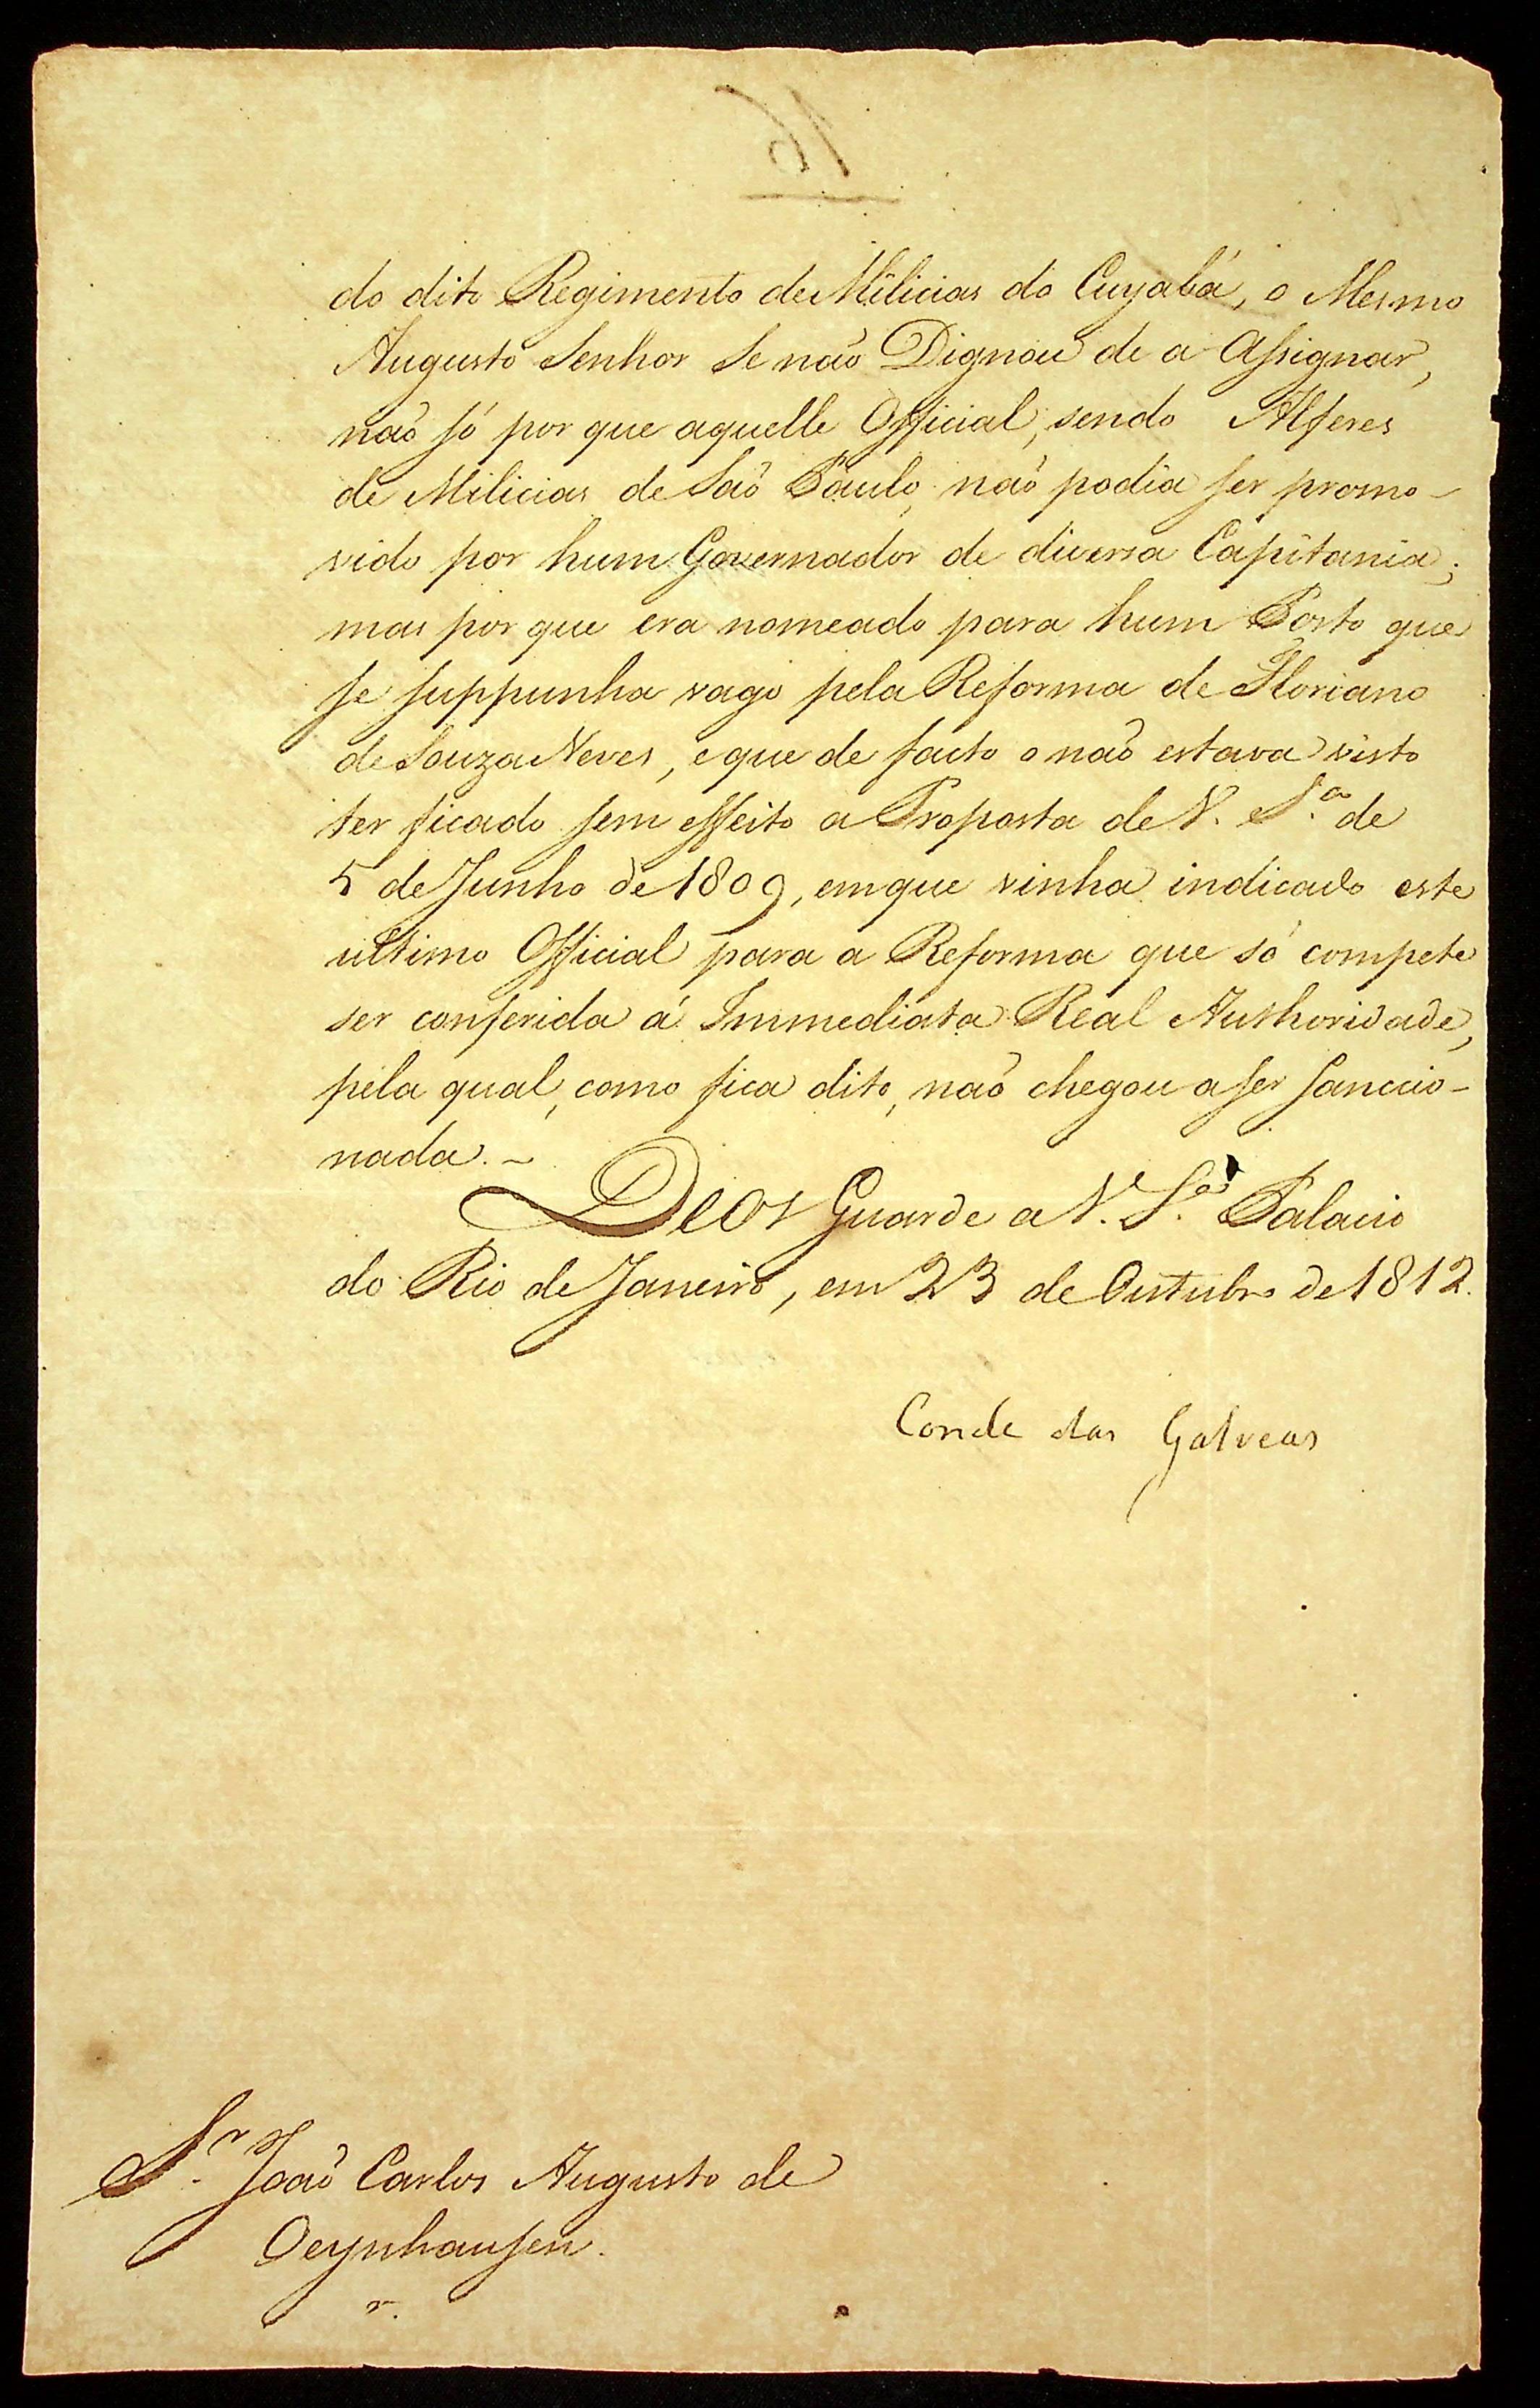 16
do dito Regimento de Milicias do Cuyabá, o Mesmo
Augusto Senhor Se não Dignou de a Assignar,
não só por que aquelle Official, sendo Alferes
de Milicias de São Paulo, não podia ser promo-
vido por hum Governador de diversa Capitania;
mas por que era nomeado para hum Posto que
se suppunha vago pela Reforma de Floriano
de Souza Neves, e que de facto o não estava visto
ter ficado sem effeito a Proposta de V. S.ª de
5 de Junho de 1809, em que vinha indicado este
ultimo Official para a Reforma que só compete
ser conferida á Immediata Real Authoridade,
pela qual, como fica dito, não chegou a ser sanccio-
nada. ~
Deos Guarde a V. S.ª Palacio
do Rio de Janeiro, em 23 de Outubro de 1812.
Conde das Galveas
S.r João Carlos Augusto de
Oeynhausen.